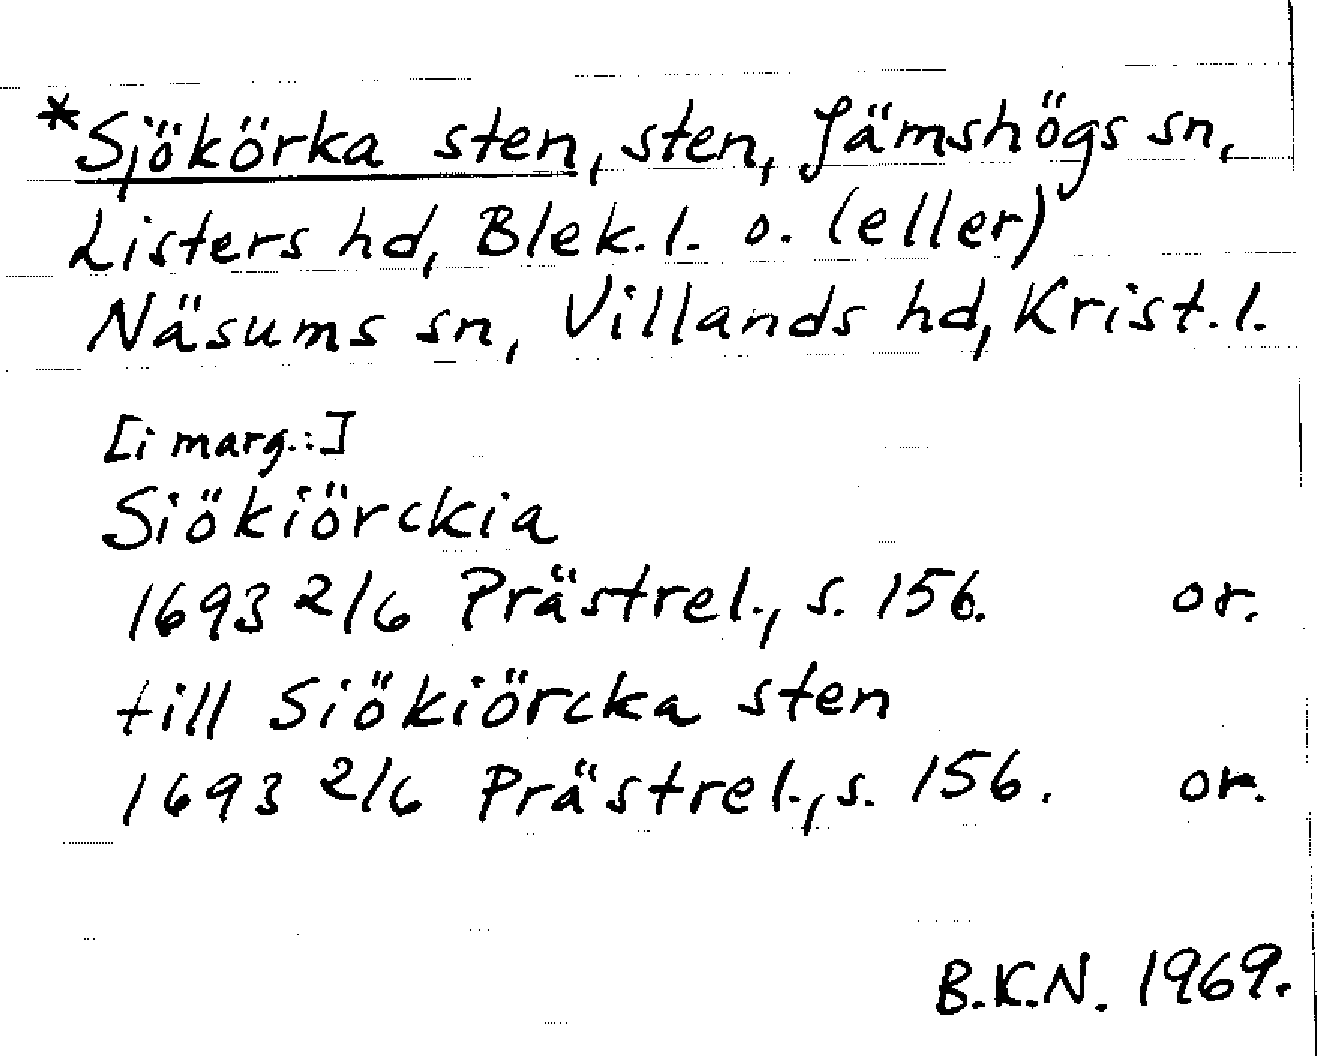 *Sjökörka sten, sten, Jämshögs sn,
Listers hd, Blek. l. o. (eller)
Näsums sn, Villands hd, Krist. l.
[i marg.:]
Siökiörckia
1693 2/6 Prästrel., s. 156. or.
till Siökiörcka sten
1693 2/6 Prästrel., s. 156. or.
B.K.N. 1969.